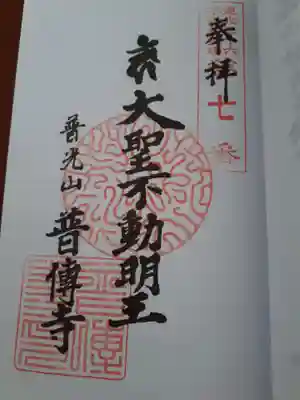 奉拝
七
大聖不動明王
普光山
普傳寺